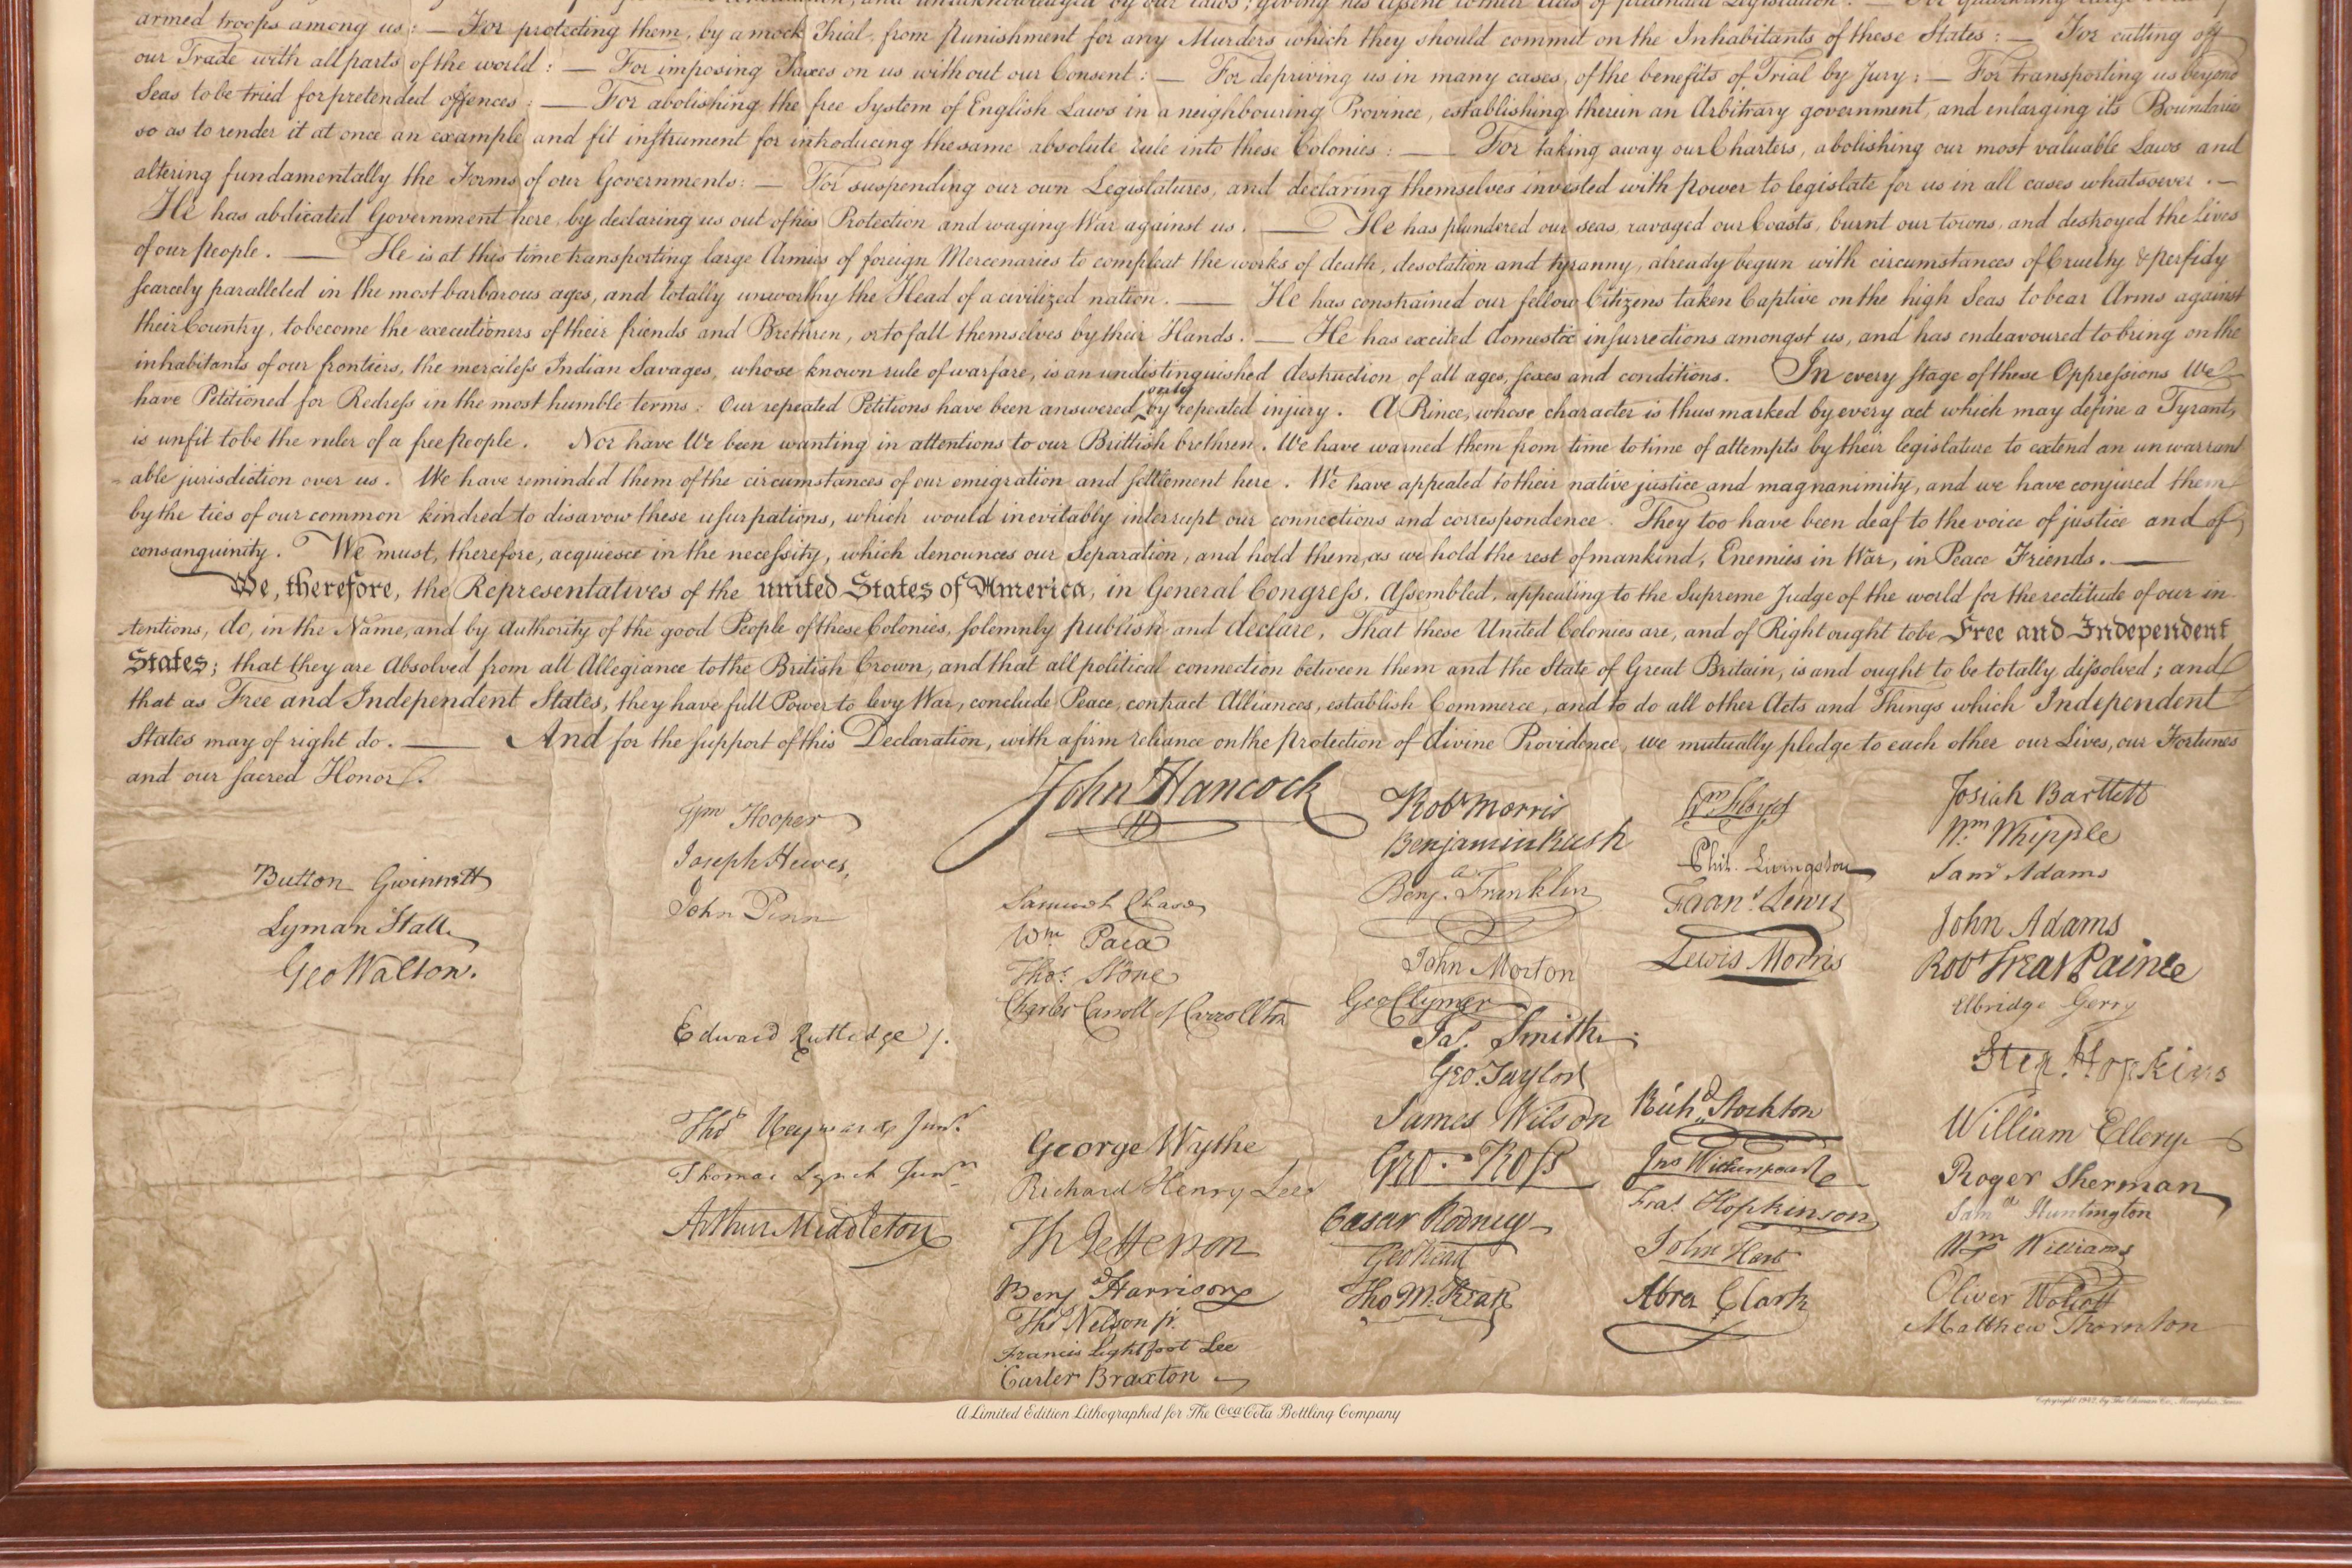 armed troops among us : — For protecting them, by a mock Trial, from punishment for any Murders which they should commit on the Inhabitants of these States : — For cutting off
our Trade with all parts of the world : — For imposing Taxes on us without our Consent : — For depriving us in many cases, of the benefits of Trial by Jury : — For transporting us beyond
Seas to be tried for pretended offences : — For abolishing the free System of English Laws in a neighbouring Province, establishing therein an Arbitrary government, and enlarging its Boundaries
so as to render it at once an example and fit instrument for introducing the same absolute rule into these Colonies : — For taking away our Charters, abolishing our most valuable Laws and
altering fundamentally the Forms of our Governments : — For suspending our own Legislatures, and declaring themselves invested with power to legislate for us in all cases whatsoever . —
He has abdicated Government here, by declaring us out of his Protection and waging War against us . — He has plundered our seas, ravaged our Coasts, burnt our towns, and destroyed the Lives
of our people . — He is at this time transporting large Armies of foreign Mercenaries to compleat the works of death, desolation and tyranny, already begun with circumstances of Cruelty & perfidy
scarcely paralleled in the most barbarous ages, and totally unworthy the Head of a civilized nation . — He has constrained our fellow Citizens taken Captive on the high Seas to bear Arms against
their Country, to become the executioners of their friends and Brethren, or to fall themselves by their Hands . — He has excited domestic insurrections amongst us, and has endeavoured to bring on the
inhabitants of our frontiers, the merciless Indian Savages, whose known rule of warfare, is an undistinguished destruction of all ages, sexes and conditions . In every stage of these Oppressions We
have Petitioned for Redress in the most humble terms : Our repeated Petitions have been answered only by repeated injury . A Prince, whose character is thus marked by every act which may define a Tyrant,
is unfit to be the ruler of a free people . Nor have We been wanting in attentions to our Brittish brethren . We have warned them from time to time of attempts by their legislature to extend an unwarrant
able jurisdiction over us . We have reminded them of the circumstances of our emigration and settlement here . We have appealed to their native justice and magnanimity, and we have conjured them
by the ties of our common kindred to disavow these usurpations, which would inevitably interrupt our connections and correspondence . They too have been deaf to the voice of justice and of
consanguinity . We must, therefore, acquiesce in the necessity, which denounces our Separation, and hold them, as we hold the rest of mankind, Enemies in War, in Peace Friends . —
We, therefore, the Representatives of the united States of America, in General Congress, Assembled, appealing to the Supreme Judge of the world for the rectitude of our in
tentions, do, in the Name, and by Authority of the good People of these Colonies, solemnly publish and declare, That these United Colonies are, and of Right ought to be Free and Independent
States; that they are Absolved from all Allegiance to the British Crown, and that all political connection between them and the State of Great Britain, is and ought to be totally dissolved; and
that as Free and Independent States, they have full Power to levy War, conclude Peace, contract Alliances, establish Commerce, and to do all other Acts and Things which Independent
States may of right do . — And for the support of this Declaration, with a firm reliance on the protection of divine Providence, we mutually pledge to each other our Lives, our Fortunes
and our sacred Honor .
Button Gwinnett
Lyman Hall.
Geo Walton.
Wm Hooper
Joseph Hewes,
John Penn
Edward Rutledge /.
Thos Heyward Junr.
Thomas Lynch Junr.
Arthur Middleton
John Hancock
Samuel Chase
Wm Paca
Thos. Stone
Charles Carroll of Carrollton
George Wythe
Richard Henry Lee
Th Jefferson
Benj Harrison
Thos Nelson jr.
Francis Lightfoot Lee
Carter Braxton
Robt Morris
Benjamin Rush
Benj. Franklin
John Morton
Geo Clymer
Jas. Smith.
Geo. Taylor
James Wilson
Geo. Ross
Caesar Rodney
Geo Read
Tho M:Kean
Wm Floyd
Phil. Livingston
Frans. Lewis
Lewis Morris
Richd. Stockton
Jno Witherspoon
Fras. Hopkinson
John Hart
Abra Clark
Josiah Bartlett
Wm Whipple
Saml Adams
John Adams
Robt Treat Paine
Elbridge Gerry
Step. Hopkins
William Ellery
Roger Sherman
Saml Huntington
Wm Williams
Oliver Wolcott
Matthew Thornton
A Limited Edition Lithographed for The Coca Cola Bottling Company